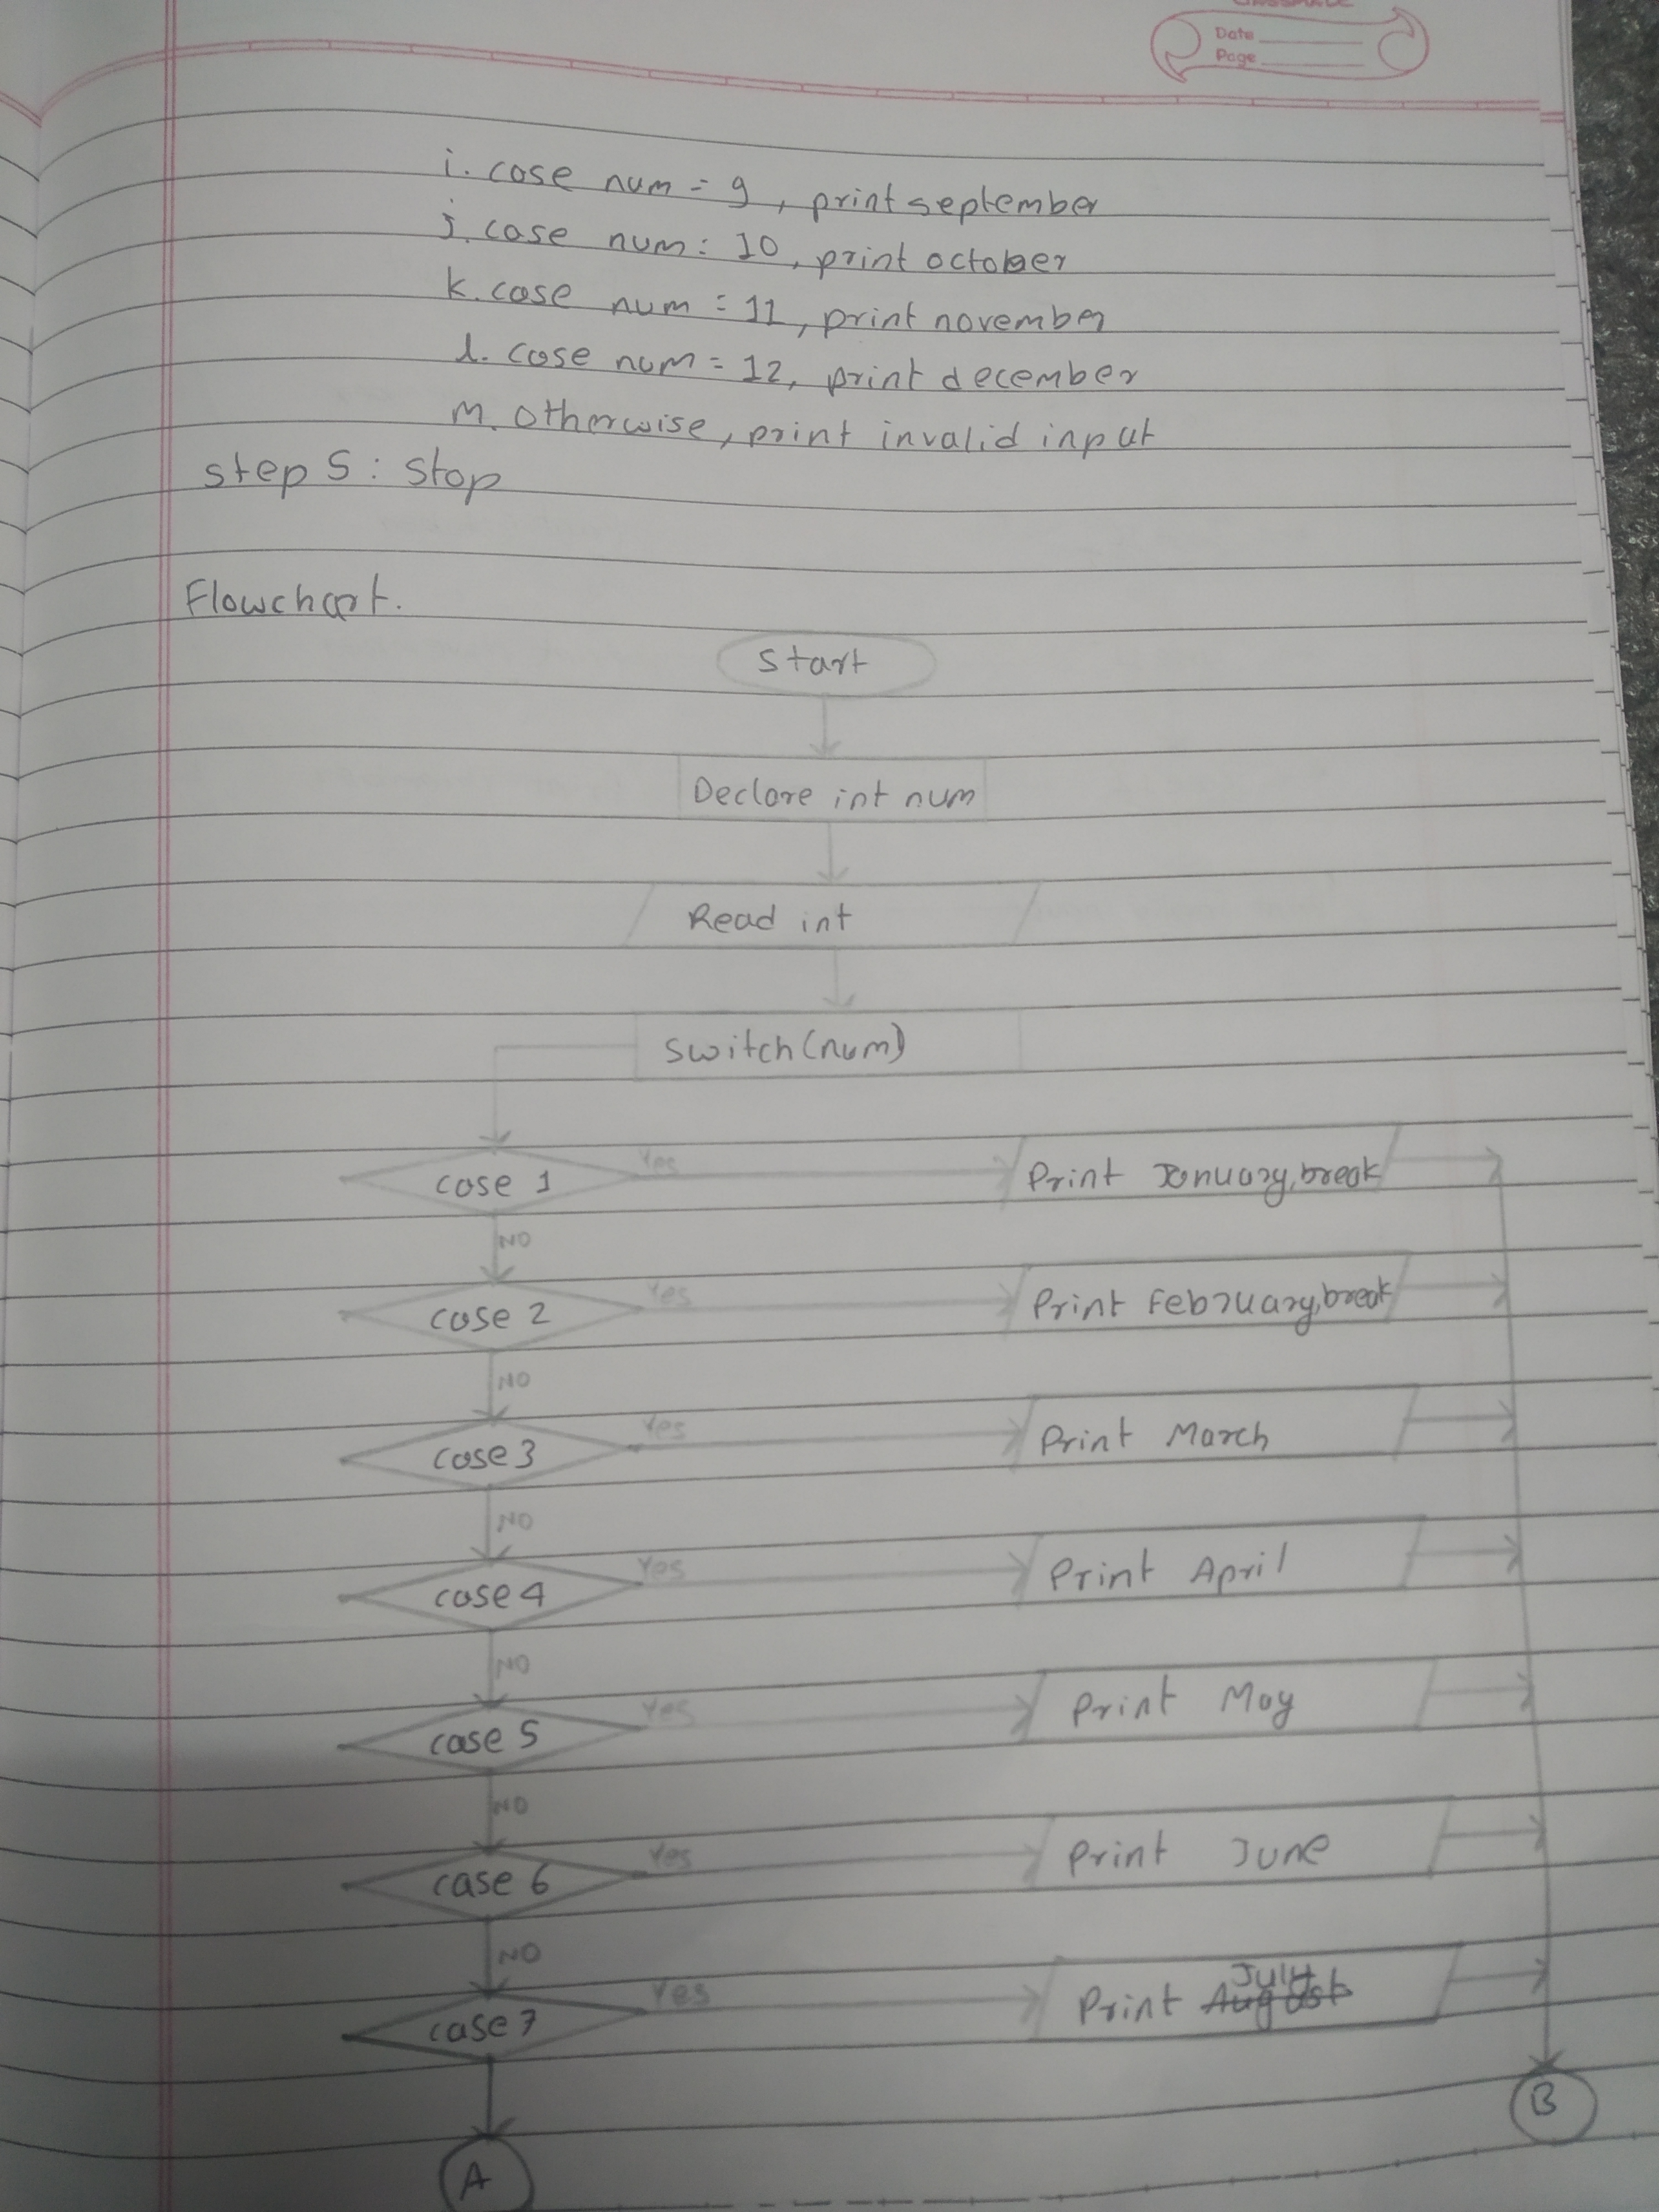 Date
Page
i. case num = 9, print september
j. case num = 10, print october
k. case num = 11, print november
l. case num = 12, print december
m. otherwise, print invalid input
step 5 : stop
Flowchart.
start
Declare int num
Read int
switch(num)
case 1 Yes Print January, break
NO
case 2 Yes Print February, break
NO
case 3 Yes Print March
NO
case 4 Yes Print April
NO
case 5 Yes Print May
NO
case 6 Yes Print June
NO
July
case 7 Yes Print August
B
A